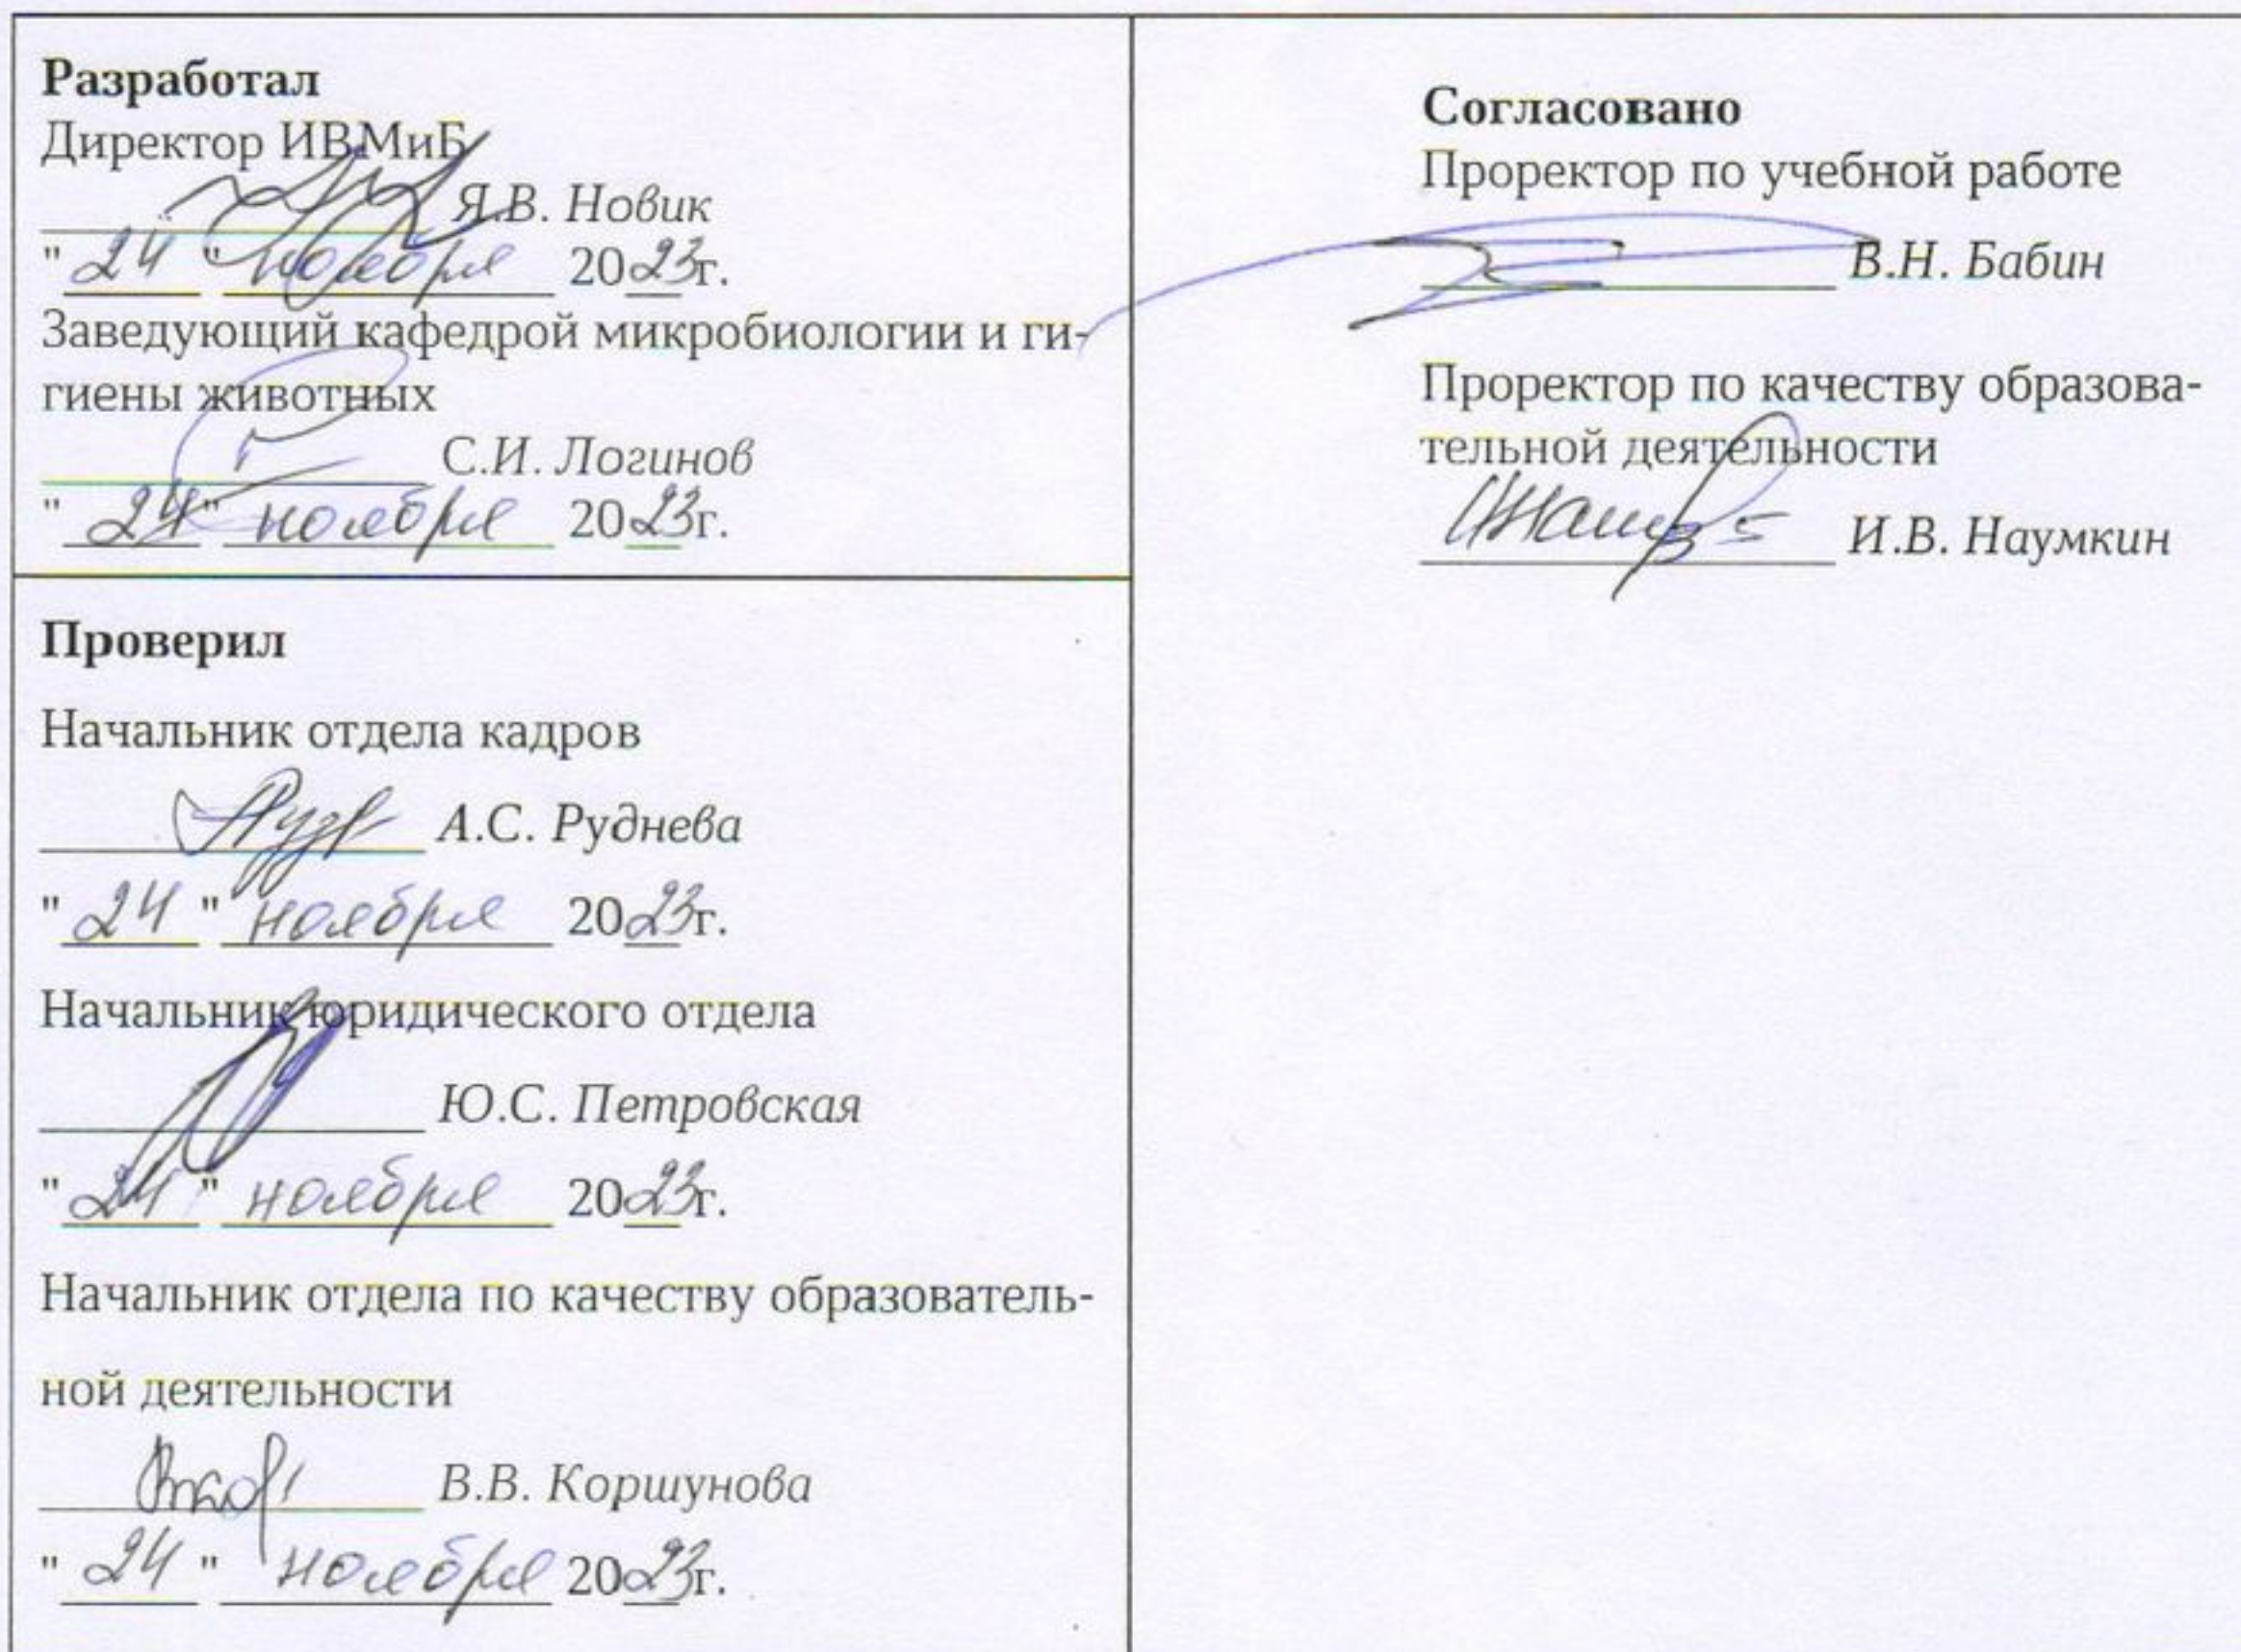 Разработал
Директор ИВМиБ
Я.В. Новик
"24" ноября 2023г.
Заведующий кафедрой микробиологии и ги-
гиены животных
С.И. Логинов
"24" ноября 2023г.
Проверил
Начальник отдела кадров
А.С. Руднева
"24" ноября 2023г.
Начальник юридического отдела
Ю.С. Петровская
"24" ноября 2023г.
Начальник отдела по качеству образователь-
ной деятельности
В.В. Коршунова
"24" ноября 2023г.
Согласовано
Проректор по учебной работе
В.Н. Бабин
Проректор по качеству образова-
тельной деятельности
И.В. Наумкин